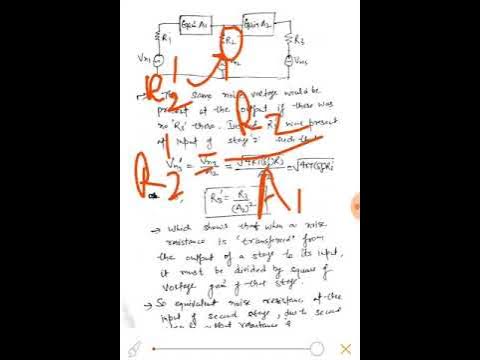 Gain A1 Gain A2
R1 R2 R3
Vn1 Vn3
R2'
→ The same noise voltage would be
present at the output if there was
no 'R3' there. was present
at input of stage 2 such that
R2
R2'
A1
Vn3' = Vn3/A2 = = √4KTBR3'
R3' = R3/(A2)²
→ Which shows that when a noise
resistance is 'transferred' from
the output of a stage to its input,
it must be divided by square of
voltage gain of that stage.
→ So equivalent noise resistance at the
input of second stage, due to second
output resistance is